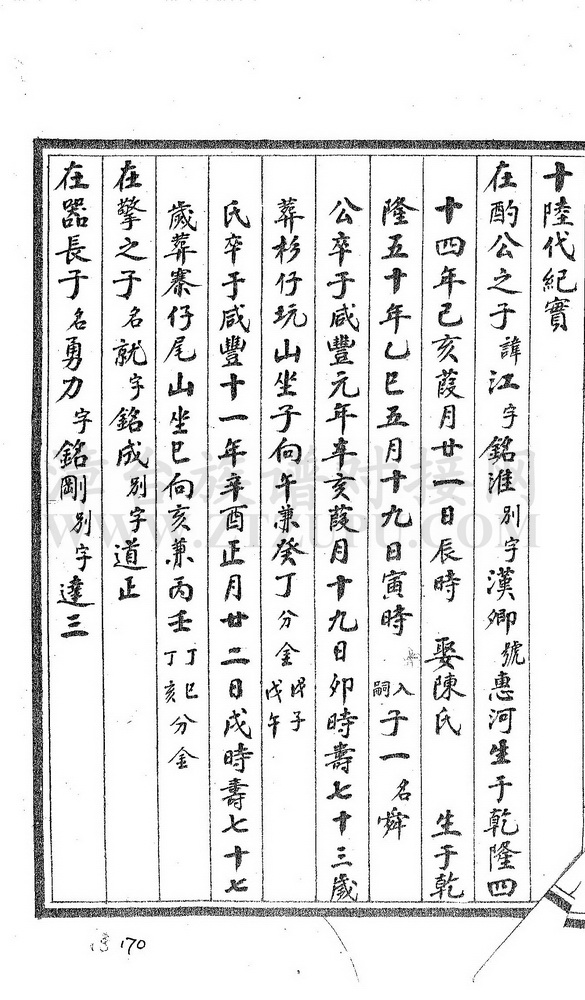 十陸代紀實
在酌公之子諱江字銘淮別字漢卿號惠河生于乾隆四
十四年己亥葭月廿一日辰時 娶陳氏 生于乾
隆五十年乙巳五月十九日寅時 入嗣子一名舜
公卒于咸豐元年辛亥葭月十九日卯時壽七十三歲
葬杉仔坑山坐子向午兼癸丁分金戊子戊午
氏卒于咸豐十一年辛酉正月廿二日戌時壽七十七
歲葬寨仔尾山坐巳向亥兼丙壬丁巳丁亥分金
在擎之子名就字銘成別字道正
在器長子名勇力字銘剛別字達三
170
www.ztzupu.com